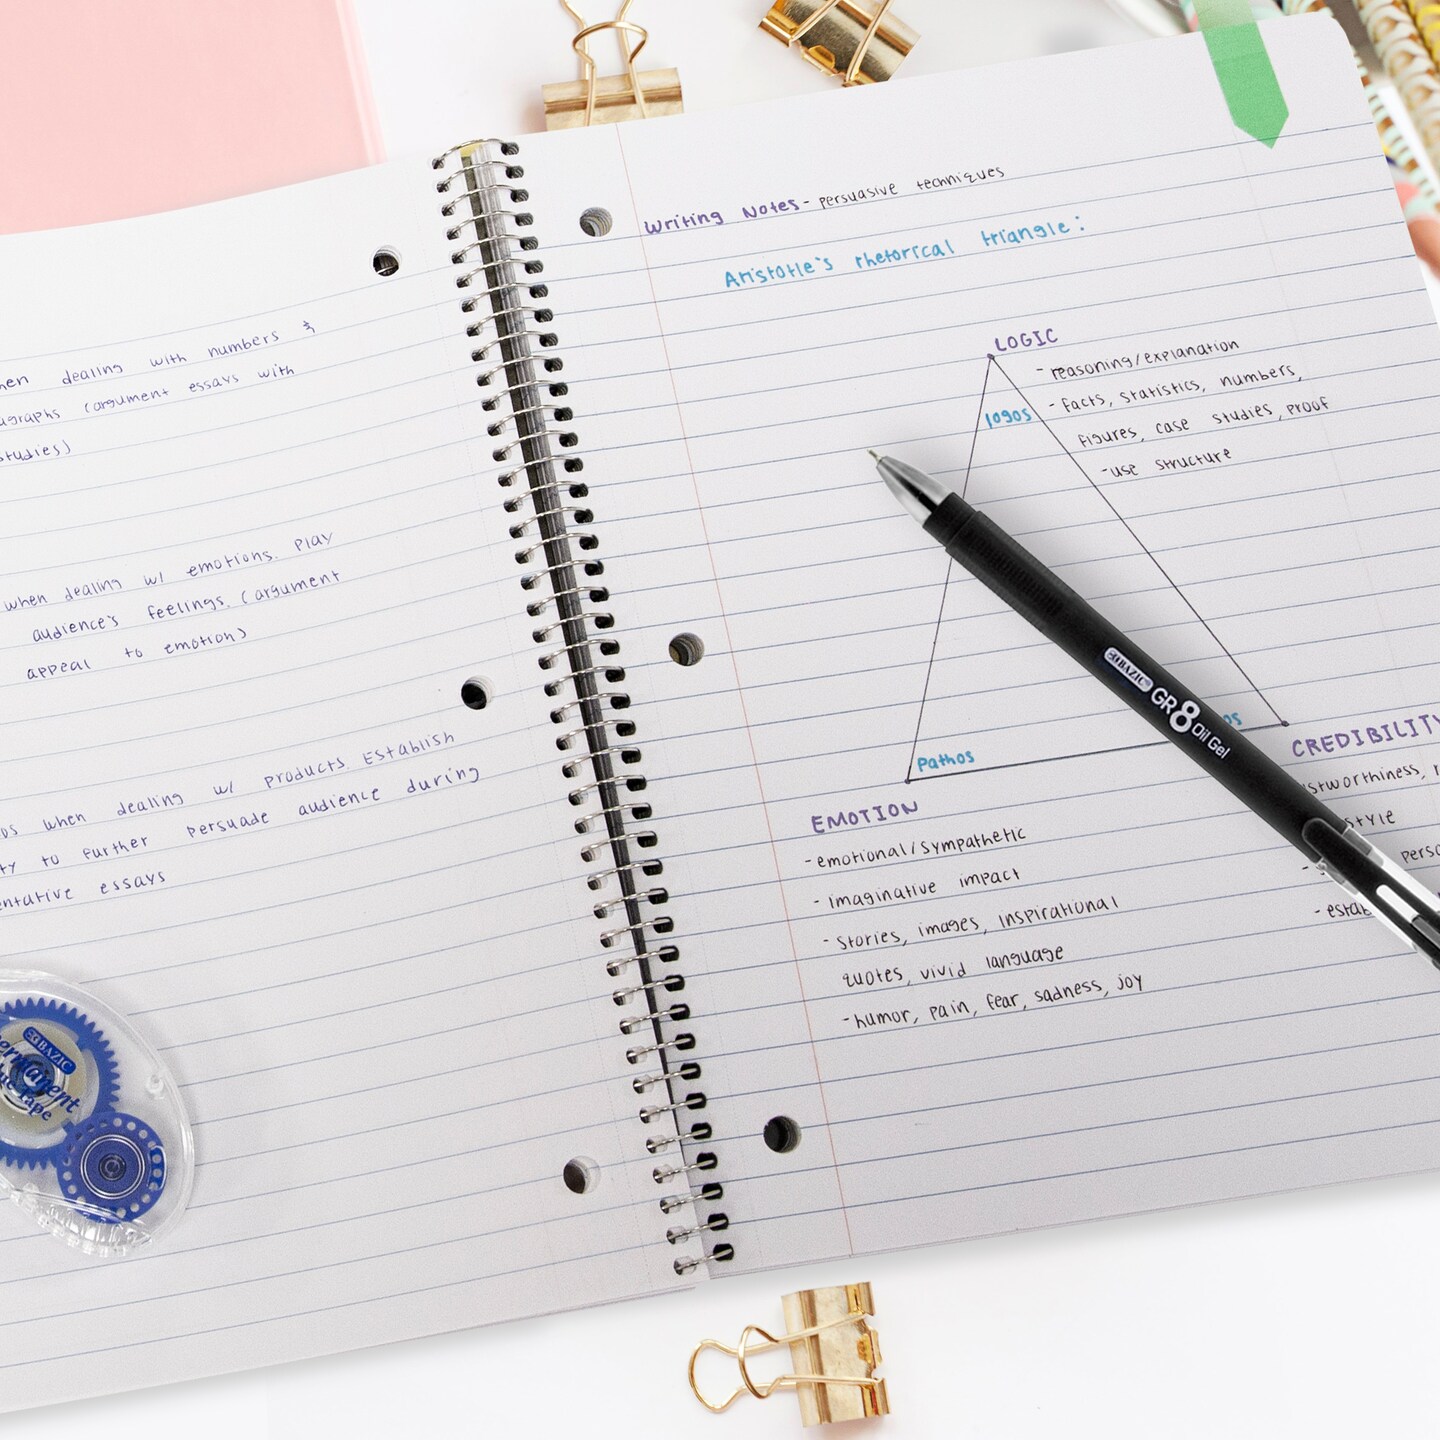 dealing with numbers &
(argument essays with
when dealing w/ emotions. Play
audience's feelings. (argument
appeal to emotion)
when dealing w/ products. Establish
to further persuade audience during
essays
BAZIC
Tape
Writing Notes - persuasive techniques
Aristotle's rhetorical triangle:
LOGIC
- reasoning/explanation
- facts, statistics, numbers,
figures, case studies, proof
- use structure
logos
BAZIC
GR8 Oil Gel
pathos
EMOTION
- emotional/sympathetic
- imaginative impact
- stories, images, inspirational
quotes, vivid language
- humor, pain, fear, sadness, joy
CREDIBILITY